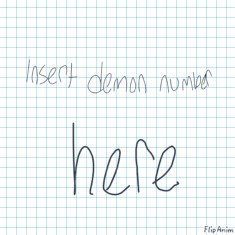 Insert demon number
here
FlipAnim